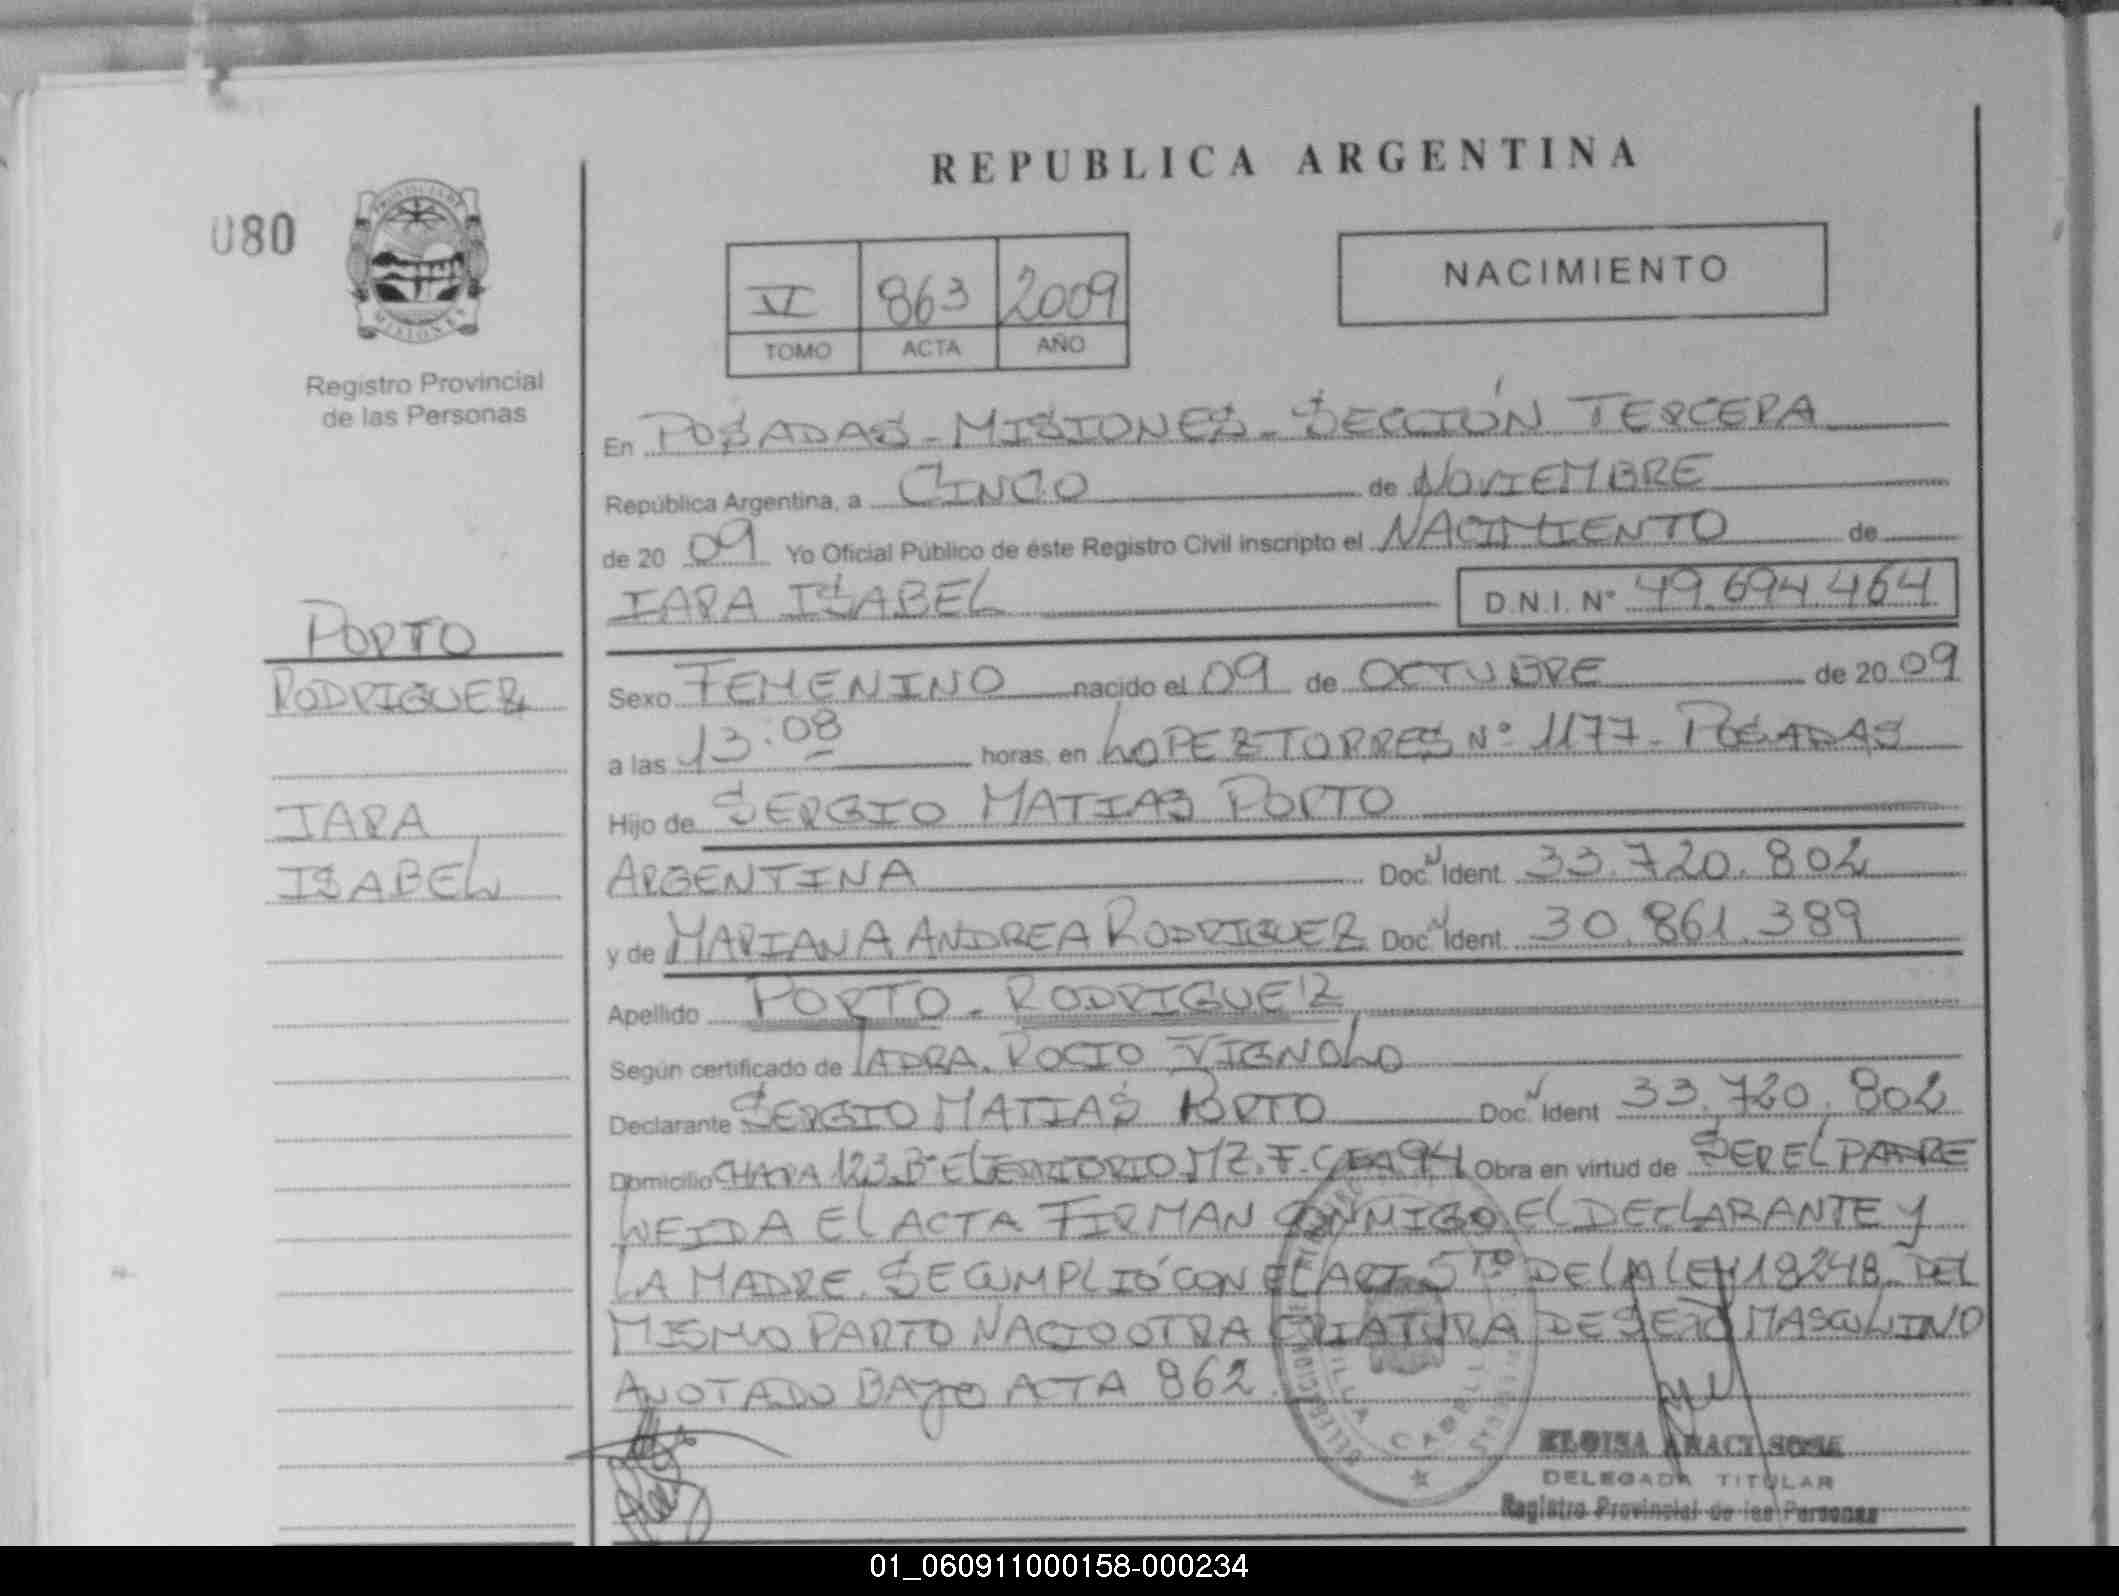 REPUBLICA ARGENTINA
080
PROVINCIA DE
MISIONES
Registro Provincial
de las Personas
VI 863 2009
TOMO ACTA AÑO
NACIMIENTO
En POSADAS - MISIONES - SECCIÓN TERCERA
República Argentina, a CINCO de NOVIEMBRE
de 20 09 Yo Oficial Público de éste Registro Civil inscripto el NACIMIENTO de
IARA ISABEL D.N.I. N° 49.694.464
PORTO
RODRIGUEZ
IARA
ISABEL
Sexo FEMENINO nacido el 09 de OCTUBRE de 20 09
a las 13:08 horas, en LOPEZ TORRES N° 1177 - POSADAS
Hijo de SERGIO MATIAS PORTO
ARGENTINA Doc. Ident. 33.720.802
y de MARIANA ANDREA RODRIGUEZ Doc. Ident. 30.861.389
Apellido PORTO - RODRIGUEZ
Según certificado de LA DRA. ROCIO VIGNOLO
Declarante SERGIO MATIAS PORTO Doc. Ident 33.720.802
Domicilio CHAPA 123 B° EL MZ. F. CASA 94 Obra en virtud de SER EL PADRE
LEIDA EL ACTA FIRMAN CONMIGO EL DECLARANTE Y
LA MADRE. SE CUMPLIÓ CON EL ART. 5TO DE LA LEY 18248. DEL
MISMO PARTO NACIO OTRA CRIATURA DE SEXO MASCULINO
ANOTADO BAJO ACTA 862.
VILLA CABELLO
ELOISA ARACI SOSA
DELEGADA TITULAR
Registro Provincial de las Personas
01_060911000158-000234